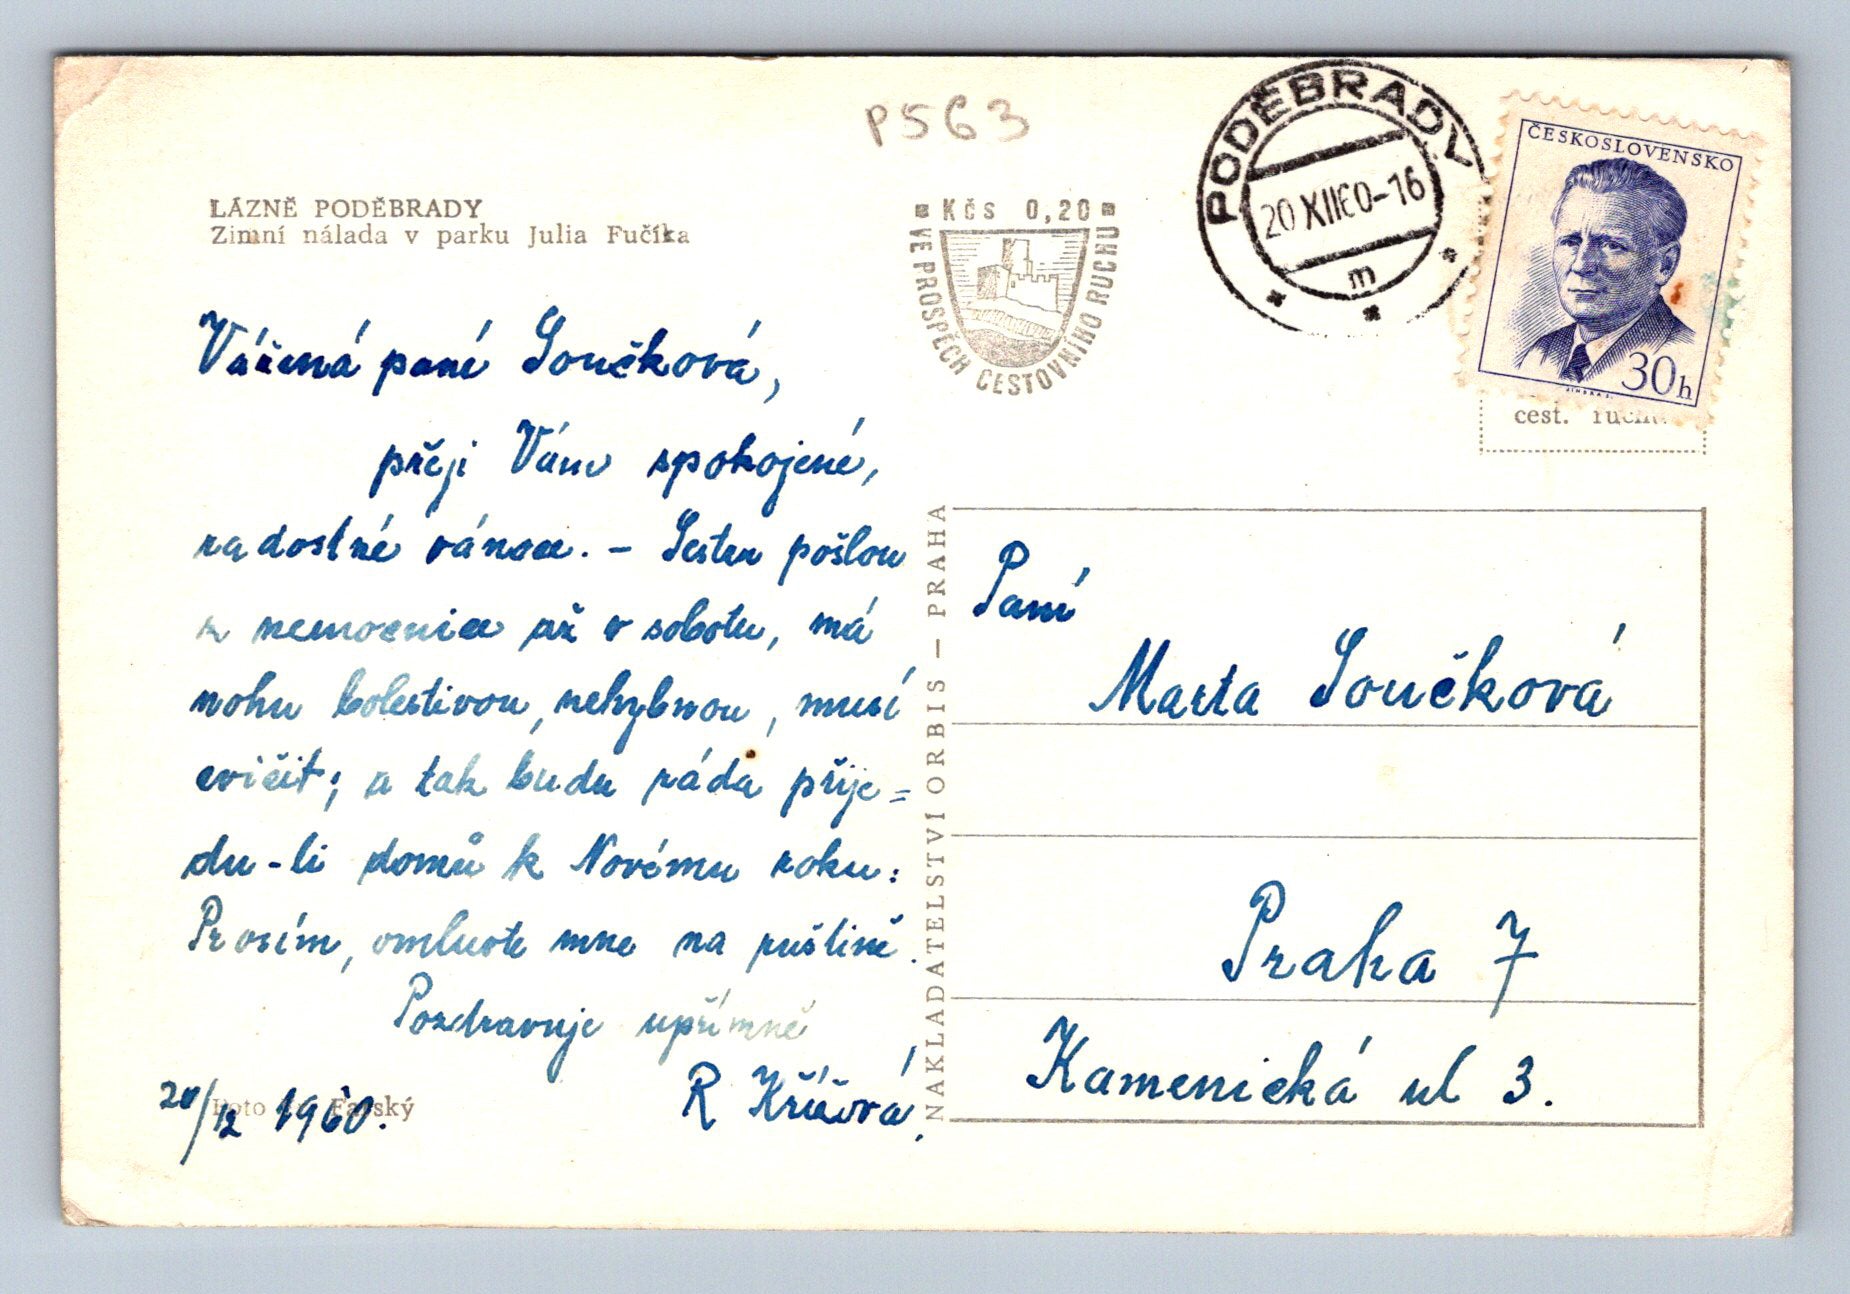 P563
LÁZNĚ PODĚBRADY
Zimní nálada v parku Julia Fučíka
Kčs 0,20
VE PROSPĚCH CESTOVNÍHO RUCHU
PODĚBRADY
20 XII 60-16
m
ČESKOSLOVENSKO
30h
cest. ruchu
Vážená paní Součková,
přeji Vám spokojené,
radostné vánoce. – Sestru pošlou
z nemocnice až v sobotu, má
nohu bolestivou, nehybnou, musí
cvičit; a tak budu ráda přije=
du-li domů k Novému roku.
Prosím, omluvte mne na
Pozdravuje upřímně
R Křížová,
20/12 1960.
Foto Farský
NAKLADATELSTVÍ ORBIS — PRAHA
Paní
Marta Součková
Praha 7
Kamenická ul 3.